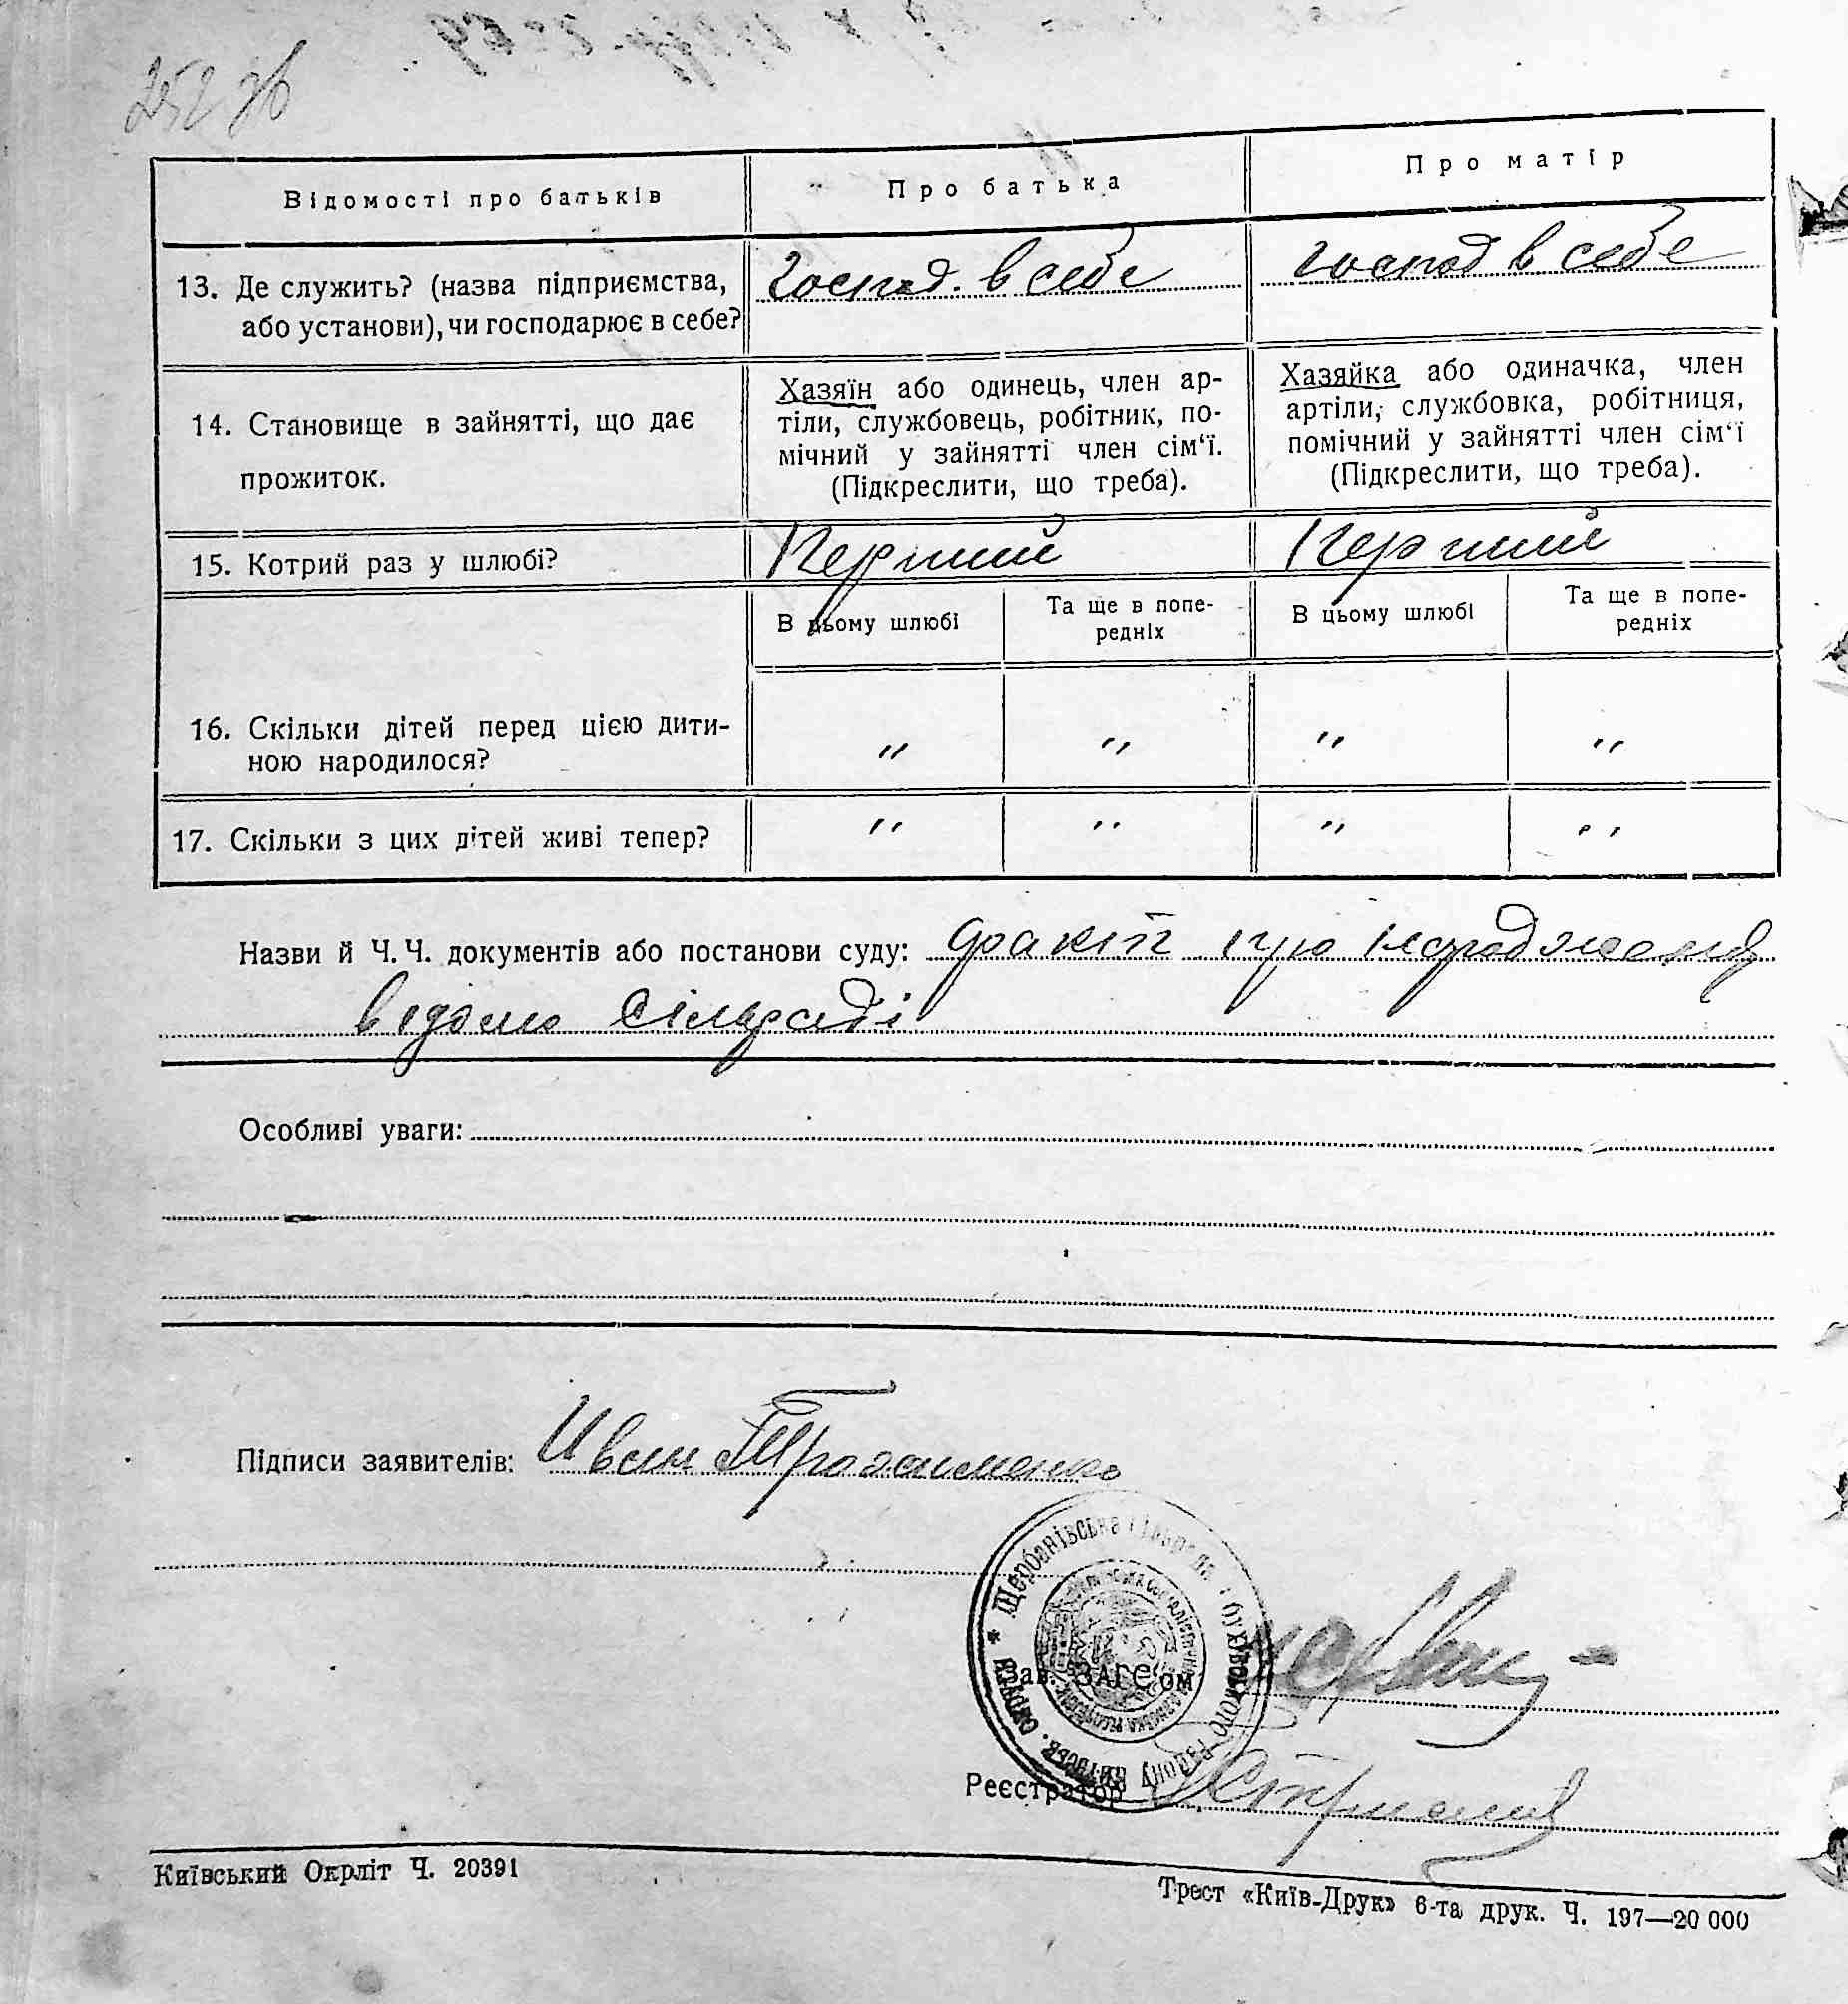 252 зв
Відомості про батьків
Про батька
Про матір
13. Де служить? (назва підприємства,
або установи), чи господарює в себе?
Господ. в себе
господ в себе
14. Становище в зайнятті, що дає
прожиток.
Хазяїн або одинець, член ар-
тіли, службовець, робітник, по-
мічний у зайнятті член сім‘ї.
(Підкреслити, що треба).
Хазяйка або одиначка, член
артіли, службовка, робітниця,
помічний у зайнятті член сім‘ї
(Підкреслити, що треба).
15. Котрий раз у шлюбі?
Перший
Перший
В цьому шлюбі
Та ще в попе-
редніх
В цьому шлюбі
Та ще в попе-
редніх
16. Скільки дітей перед цією дити-
ною народилося?
" " " "
17. Скільки з цих дітей живі тепер?
" " " "
Назви й Ч. Ч. документів або постанови суду: факт про народження
відомо сільраді
Особливі уваги:
Підписи заявителів: Иван Трохименко
Щербанівська сільрада Обухівського району Київськ. округи
Зав. ЗАГС‘ом
Реєстратор
Київський Окрліт Ч. 20391
Трест «Київ-Друк» 6-та друк. Ч. 197—20 000